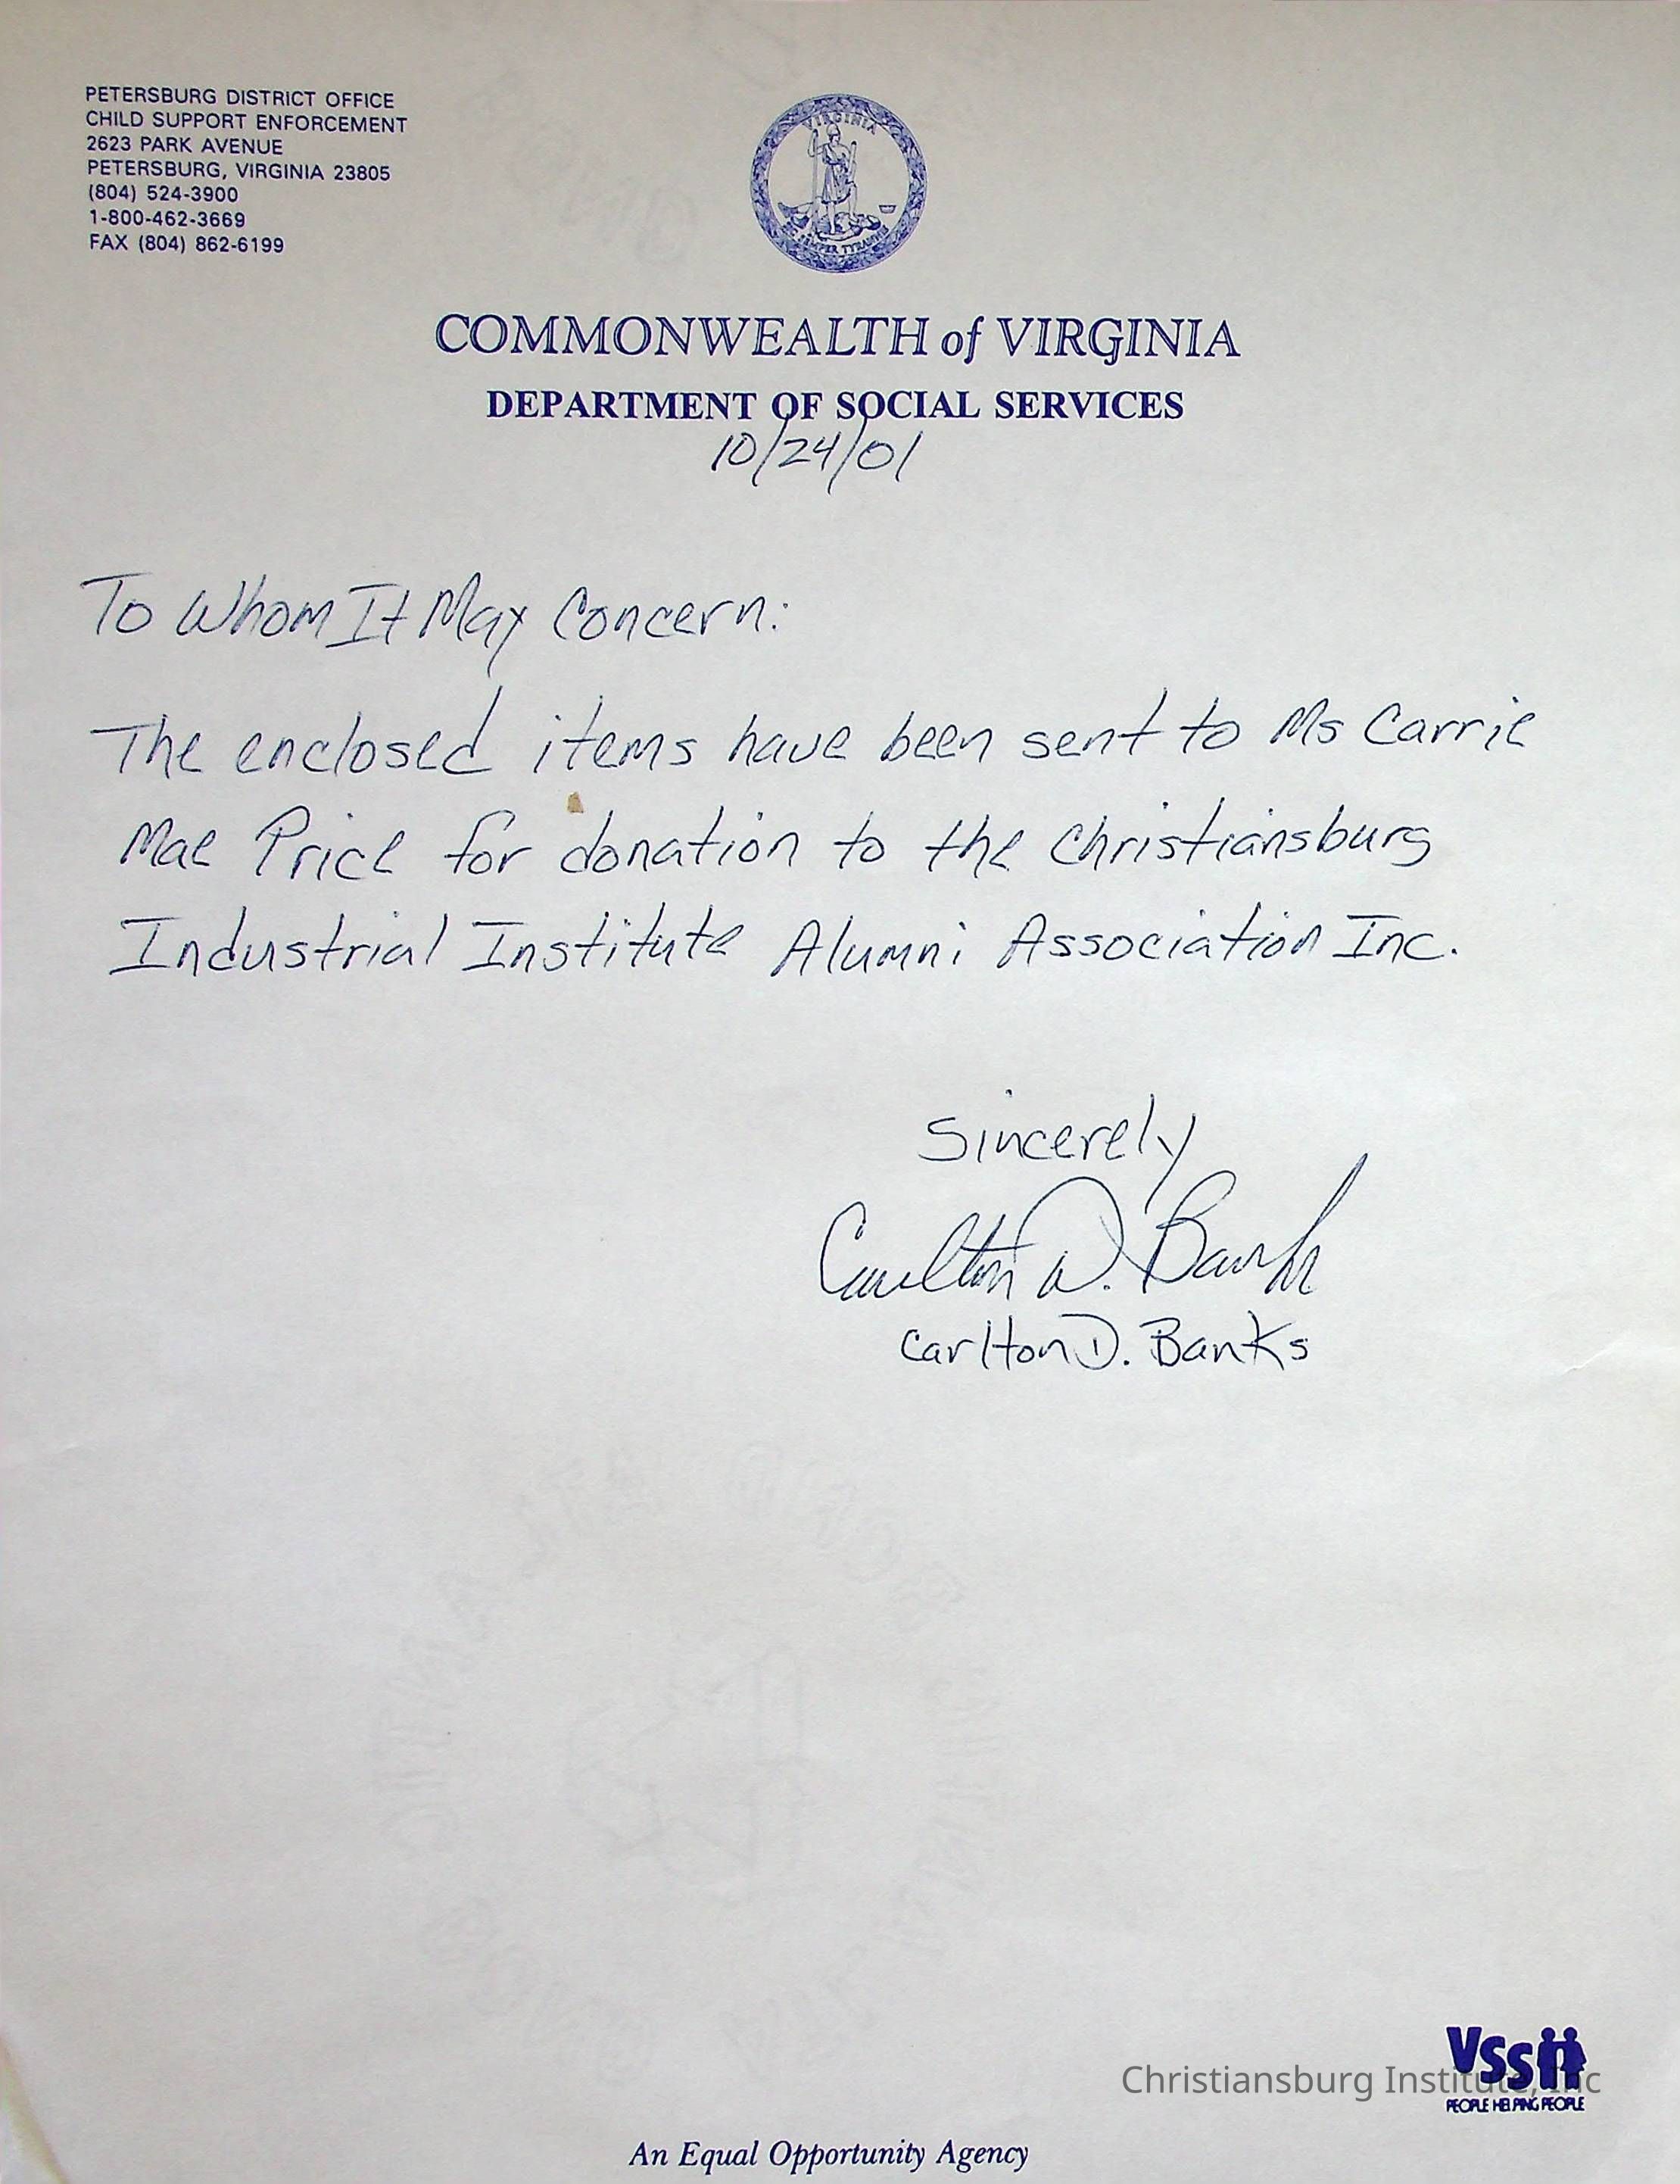 PETERSBURG DISTRICT OFFICE
CHILD SUPPORT ENFORCEMENT
2623 PARK AVENUE
PETERSBURG, VIRGINIA 23805
(804) 524-3900
1-800-462-3669
FAX (804) 862-6199
VIRGINIA
SEMPER TYRANNIS
COMMONWEALTH of VIRGINIA
DEPARTMENT OF SOCIAL SERVICES
10/24/01
To Whom It May Concern:
The enclosed items have been sent to Ms Carrie
Mae Price for donation to the Christiansburg
Industrial Institute Alumni Association Inc.
Sincerely
Carlton D. Banks
Carlton D. Banks
VSS
Christiansburg Institute, Inc
PEOPLE HELPING PEOPLE
An Equal Opportunity Agency